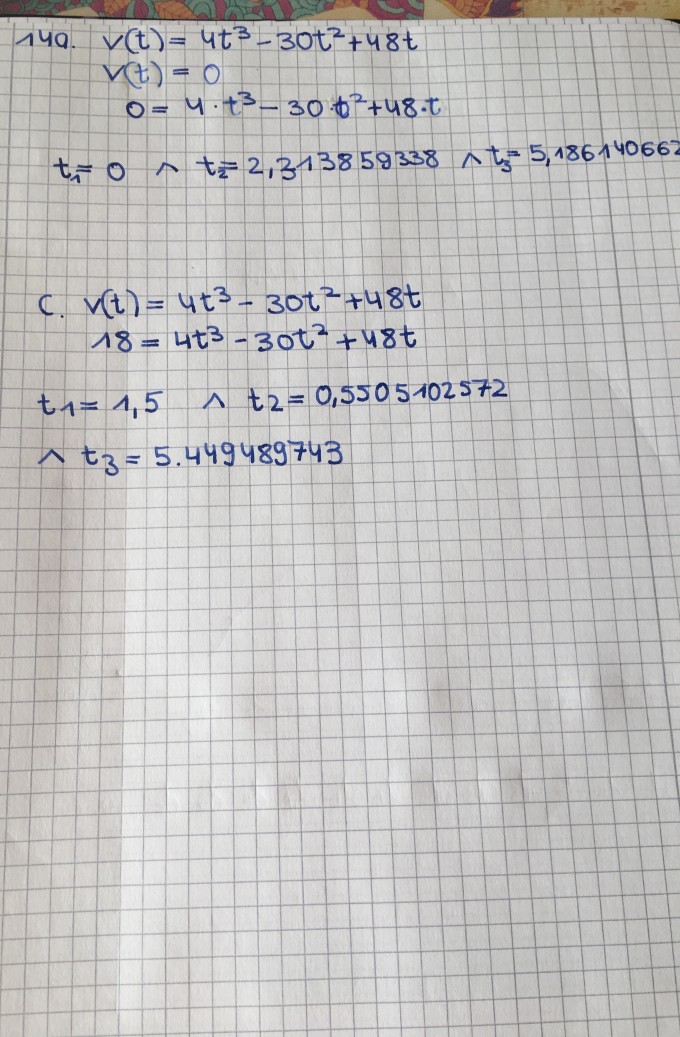 14a. v(t) = 4t³ - 30t² + 48t
v(t) = 0
0 = 4 · t³ - 30 · t² + 48 · t
t₁ = 0 ∧ t₂ = 2,313859338 ∧ t₃ = 5,186140662
c. v(t) = 4t³ - 30t² + 48t
18 = 4t³ - 30t² + 48t
t1 = 1,5 ∧ t2 = 0,5505102572
∧ t3 = 5.449489743